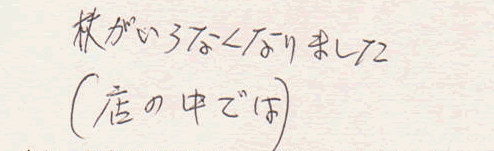 杖がいろなくなりました
(店の中では)